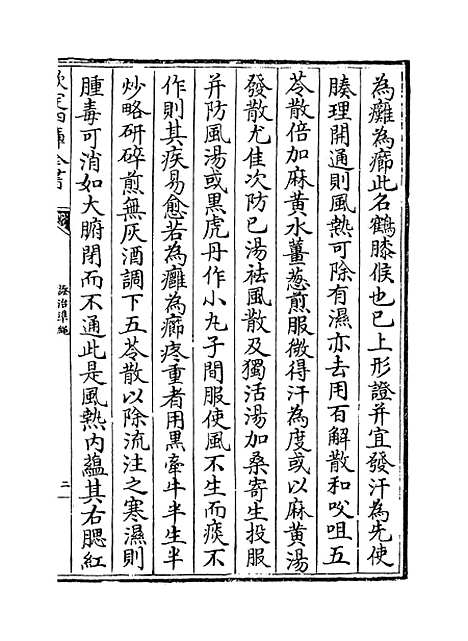 為癱為癤此名鶴膝候也已上形證并宜發汗為先使
腠理開通則風熱可除有濕亦去用百解散和㕮咀五
苓散倍加麻黃水薑葱煎服微得汗為度或以麻黃湯
發散尤佳次防已湯祛風散及獨活湯加桑寄生投服
并防風湯或黑虎丹作小丸子間服使風不生而痰不
作則其疾易愈若為癱為癤疼重者用黑牽牛半生半
炒略研碎煎無灰酒調下五苓散以除流注之寒濕則
腫毒可消如大腑閉而不通此是風熱內藴其右腮紅
欽定四庫全書
證治準繩